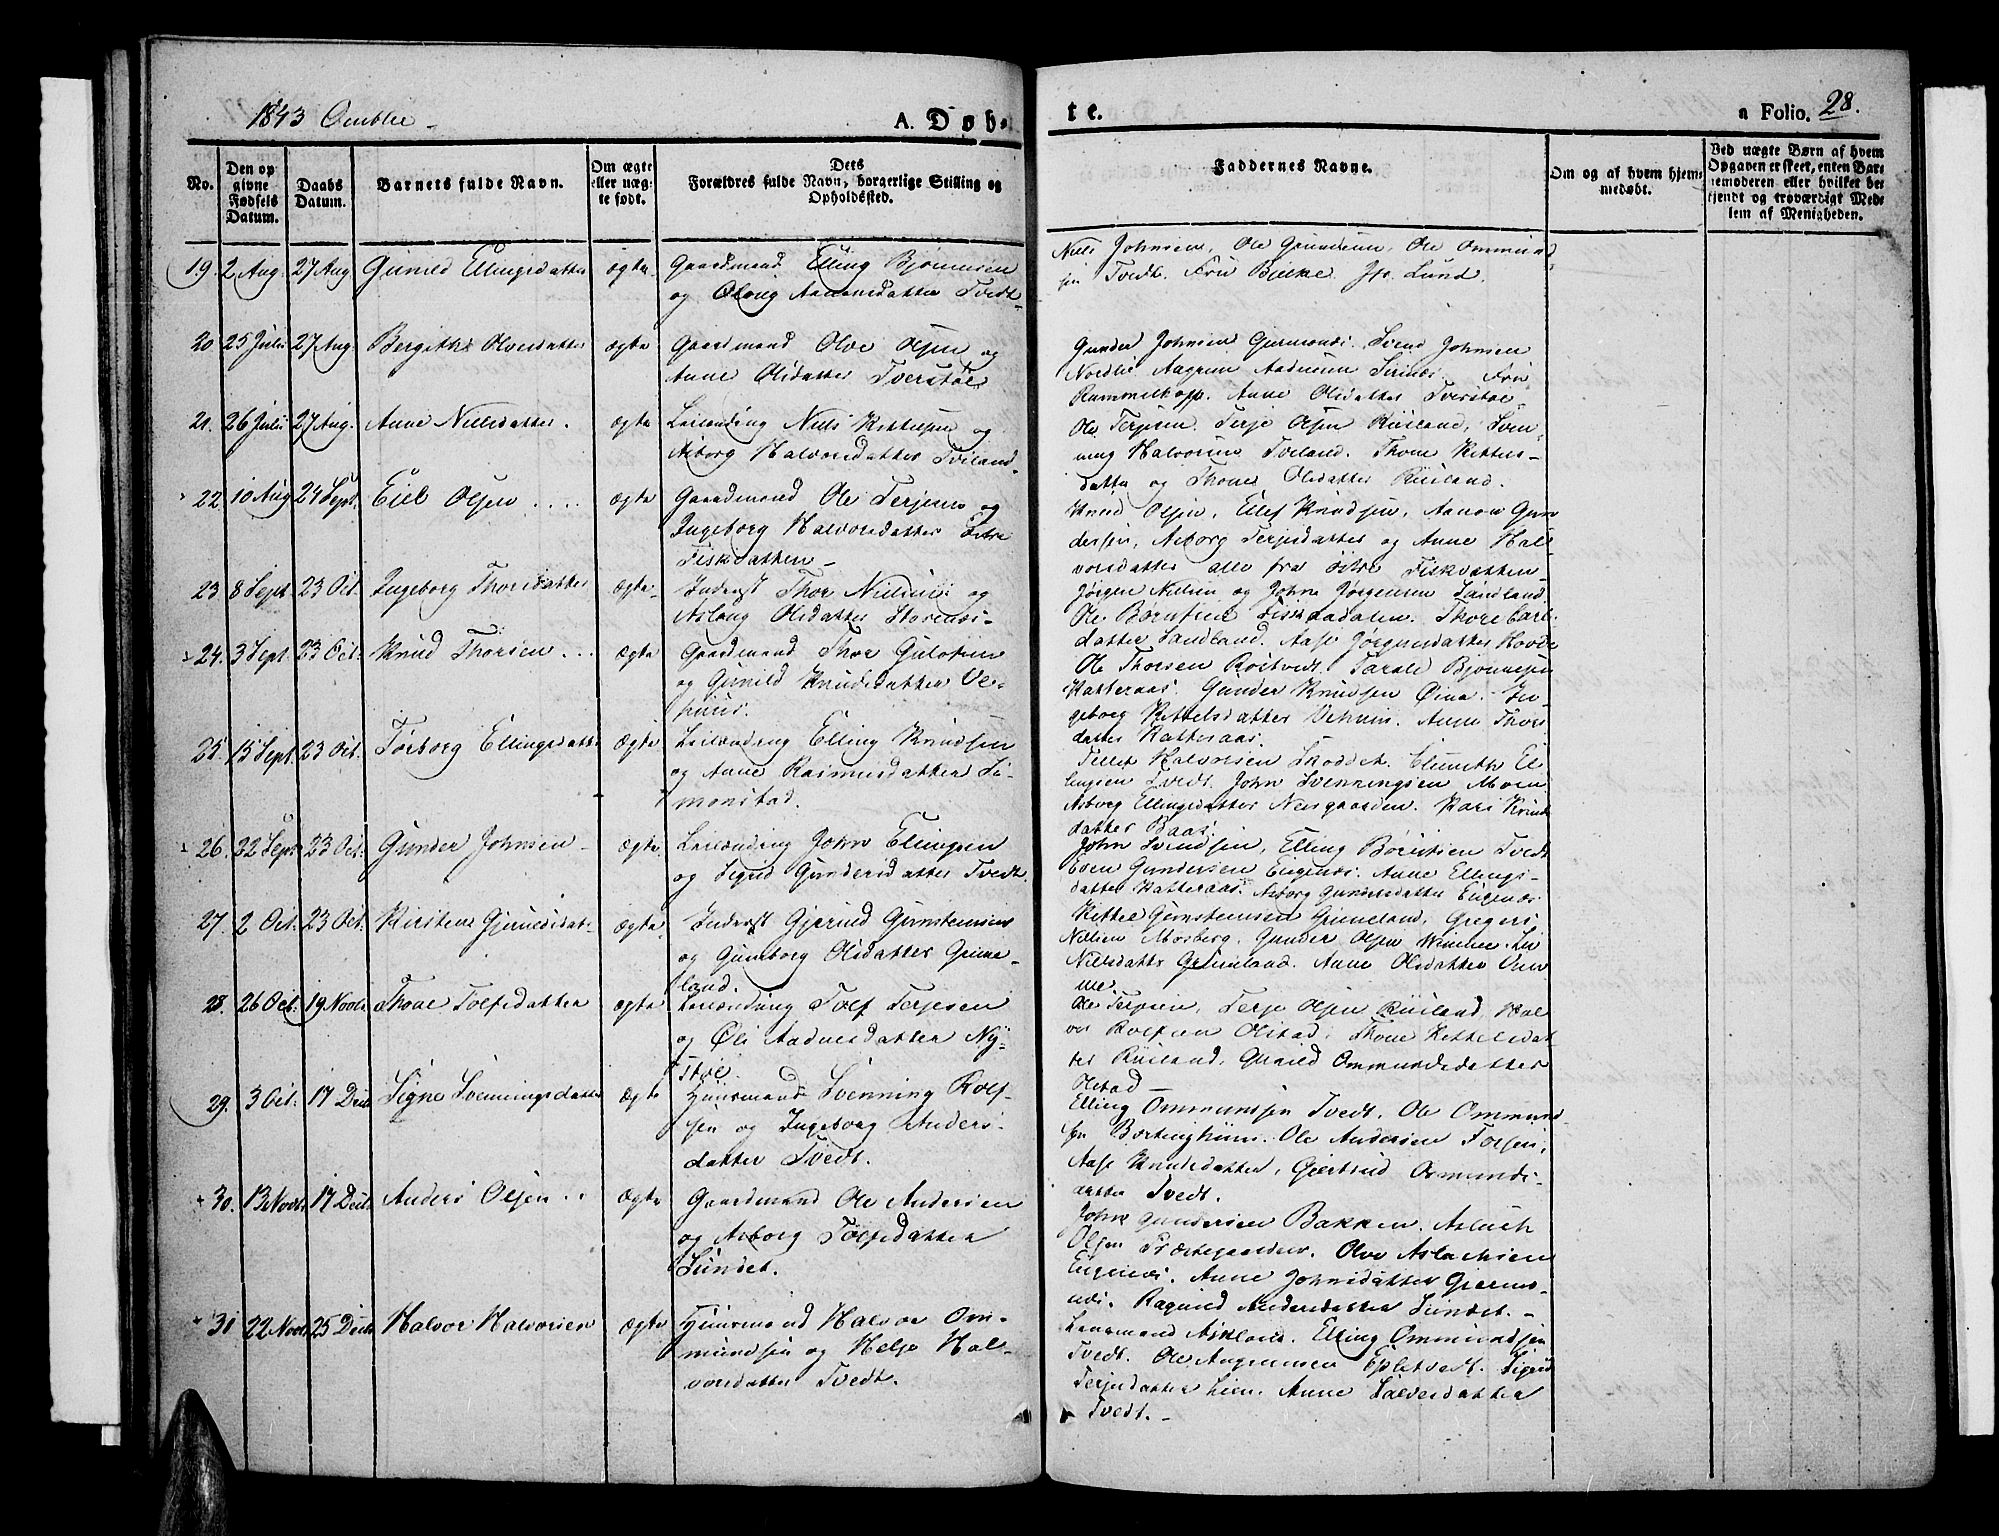 1843 Omblie
A. Døbte.
a Folio. 28.
No.
Den opgivne Fødsels Datum.
Daabs Datum.
Barnets fulde Navn.
Om ægte eller uægte født.
Dets Forældres fulde Navn, borgerlige Stilling og Opholdssted.
Faddernes Navne.
Om og af hvem hjemmedøbt.
Ved uægte Børn af hvem
Opgaven er skeet, enten Bar-
nemoderen eller hvilket be-
kjendt og troværdigt Med-
lem af Menigheden.
19. 2 Aug. 27 Aug Gunild Ellingsdatter ægte Gaardmand Elling Bjørnsen
og Oloug Aanonsdatter Tvedt
Niels Johnsen, Ole Ommund
sen Tvedt. Fru Lund.
20 25 Juli 27 Aug. Bergithe Olvesdatter ægte Gaardmand Olve Olsen og
Anne Olsdatter Tverstøl
Gunder Johnsen Svend Johnsen
Nordlie Fru
Rummelhopp. Anne Olsdatter Tverstøl
21. 26 Juli 27 Aug. Anne Nielsdatter. ægte Leilænding Niels Kittelsen og
Asborg Halvorsdatter Tveiland.
Ole Terjesen. Terje Olsen Riisland, Sven-
ning Halvorsen Tveiland. Thone Kittels-
datter og Thone Olsdatter Riisland.
22. 10 Aug 24 Sept. Eiel Olsen .... ægte Gaardmand Ole Terjesen og
Ingeborg Halvorsdatter Ittre
Fiskvatten
Knud Olsen, Ellef Knudsen, Aanon Gun
dersen, Asborg Terjesdatter og Anne Hal-
vorsdatter alle fra Ittre Fiskvatten
23. 8 Sept 23 Oct. Ingeborg Thorsdatter ægte Inderst Thor Nielsen og
Aslaug Olsdatter
Jørgen Nielsen og John Jørgensen Landland
Ole Thore Carls-
datter Landland. Aase Jørgensdatter Hovde
24. 3 Sept. 23 Oct. Knud Thorsen ... ægte Gaardmand Thor Gulovsen
og Gunild Knudsdatter Ve-
huus.
Ole Thorsen Rostvedt. Tarald Bjørnsen
Katteraas. Gunder Knudsen In-
geborg Kittelsdatter Vehuus. Anne Thors
datter Katteraas.
25. 15 Sept. 23 Oct. Torborg Ellingsdatter ægte Leilænding Elling Knudsen
og Anne Rasmusdatter Si-
monstad.
Tellef Halvorsen El-
lingsen Tvedt. John Svenningsen Moen
Asborg Ellingsdatter Nesgaarden. Kari Knuds
datter Baas.
26. 22 Sept. 23 Oct. Gunder Johnsen ægte Leilænding John Ellingsen
og Sigrid Gundersdatter Tvedt.
John Svendsen, Elling Tvedt
Even Gundersen Eugenæs. Anne Ellings-
datter Katteraas. Asborg Gundersdatter Eugenæs
27. 2 Oct. 23 Oct. Kirstene ægte Inderst Gjerund Gunstensen
og Gunborg Olsdatter Grime-
land.
Kittel Gunstensen Grimeland, Gregers
Nilsen Mosberg. Gunder Olsen
Nielsdatter Grimeland. Anne Olsdatter
28. 26 Oct. 19 Novbr. Thone Tolfsdatter ægte Leilænding Tolf Terjesen
og Oli Aadnesdatter Ny-
støl.
Ole Terjesen, Terje Olsen Riisland, Hal
vor Rolfsen Olstad, Thone Kittelsdat
ter Riisland, Gunild Ommundsdatter
Olstad
29. 3 Oct. 17 Decbr Signe Svenningsdatter ægte Huusmand Svenning Rolf-
sen og Ingeborg Anders-
datter Tvedt.
Elling Ommundsen Tvedt. Ole Ommund
sen Ole Andersen
Aase Knudsdatter, Gjertrud Osmunds-
datter Tvedt.
30. 13 Novbr 17 Decbr Anders Olsen .. ægte Gaardmand Ole Andersen
og Asborg Tolfsdatter
Sundet.
John Gundersen Bakken. Aslach
Olsen Præstegaarden. Olve Aslachsen
Eugenæs. Anne Johnsdatter Gjermo-
næs. Ragnild Andersdatter Sundet.
31 22 Novbr 25 Decbr Halvor Halvorsen ægte Huusmand Halvor Om-
mundsen og Helje Hal-
vorsdatter Tvedt.
Lensmand Askland. Elling Ommundsen
Tvedt. Ole Augrimsen Epletvedt. Sigrid
Terjesdatter Lien. Anne Salvesdatter
Tvedt.